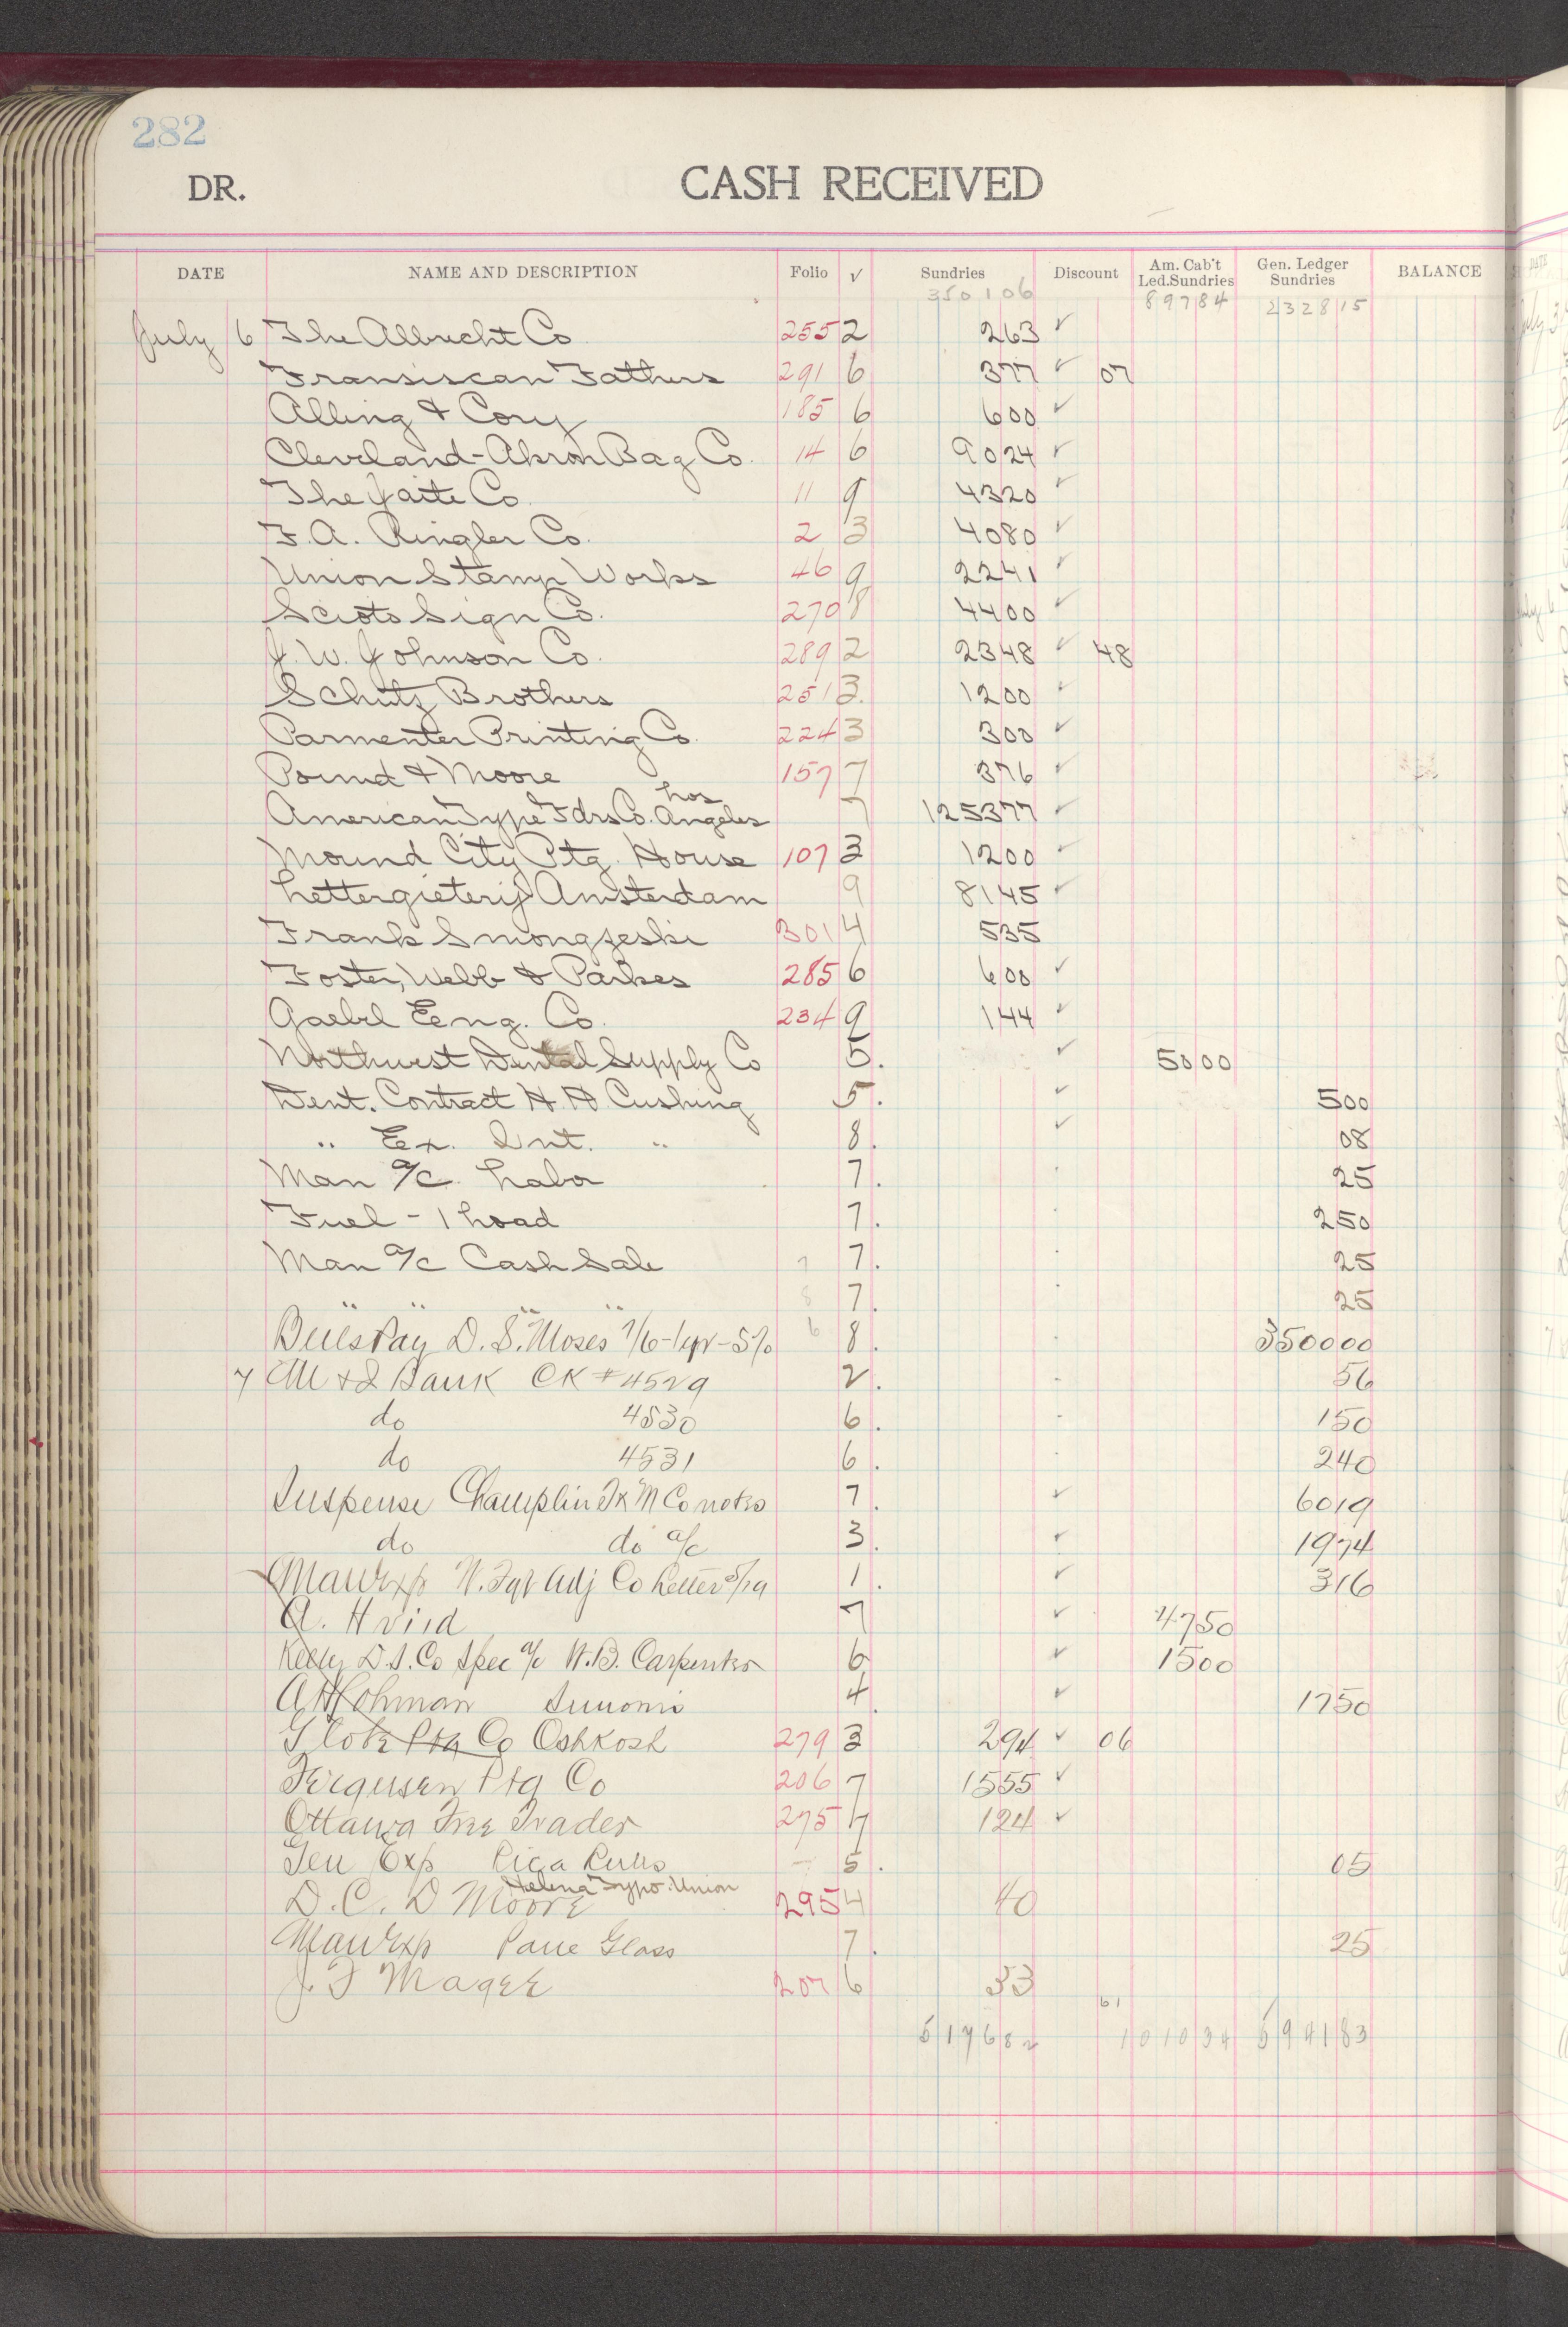 282
DR. CASH RECEIVED
DATE NAME AND DESCRIPTION Folio ✓ Sundries Discount Am. Cab't Led. Sundries Gen. Ledger Sundries BALANCE
350106 89784 232815
July 6 The Albrecht Co 255 2 263 ✓
Fransiscan Fathers 291 6 377 ✓ 07
Alling & Cory 185 6 600 ✓
Cleveland-Akron Bag Co. 14 6 9024 ✓
The Jaite Co 11 9 4320 ✓
F.A. Ringler Co. 2 3 4080 ✓
Union Stamp Works 46 9 2241 ✓
Scioto Sign Co. 270 8 4400 ✓
J.W. Johnson Co. 289 2 2348 ✓ 48
Schutz Brothers 251 3. 1200 ✓
Parmenter Printing Co. 224 3 300 ✓
Pound & Moore 157 7 376 ✓
American Type Fdrs Co. Los Angeles 7 125377 ✓
Mound City Ptg. House 107 3 1200 ✓
Lettergieterij Amsterdam 9 8145 ✓
Frank Smongjeski 301 4 535
Foster, Webb & Parkes 285 6 600 ✓
Gaebel Eeng. Co. 234 9 144 ✓
Northwest Dental Supply Co 5. ✓ 5000
Dent. Contract H.H. Cushing 5. ✓ 500
" Ex. Int. " 8. ✓ 08
Man a/c Labor 7. 25
Fuel - 1 Load 7. 250
Man a/c Cash Sale 7 7. 25
" " " 8 7. 25
Bills Pay D.S. Moses 7/6-1yr-5% 6 8. 350000
7 M & I Bank CK #4529 2. 56
do 4530 6. 150
do 4531 6. 240
Suspense Champlin Ix M Co notes 7. ✓ 6019
do do a/c 3. ✓ 1974
Man Exp W. Fgt Adj Co Letter 5/19 1. ✓ 316
A. Hviid 7 ✓ 4750
Kelly D.S. Co Spec a/c W.B. Carpenter 6 ✓ 1500
A Hohman 4. ✓ 1750
Globe Ptg Co Oshkosh 279 3 294 ✓ 06
Fergusen Ptg Co 206 7 1555 ✓
Ottawa Free Trader 275 7 124 ✓
Gen Exp Pica Rules 5. 05
Helena Typo. Union
D.C. D Moore 295 4 40
Man Exp Pane Glass 7. 25
J.F Magee 207 6 33
61
517682 101034 594183